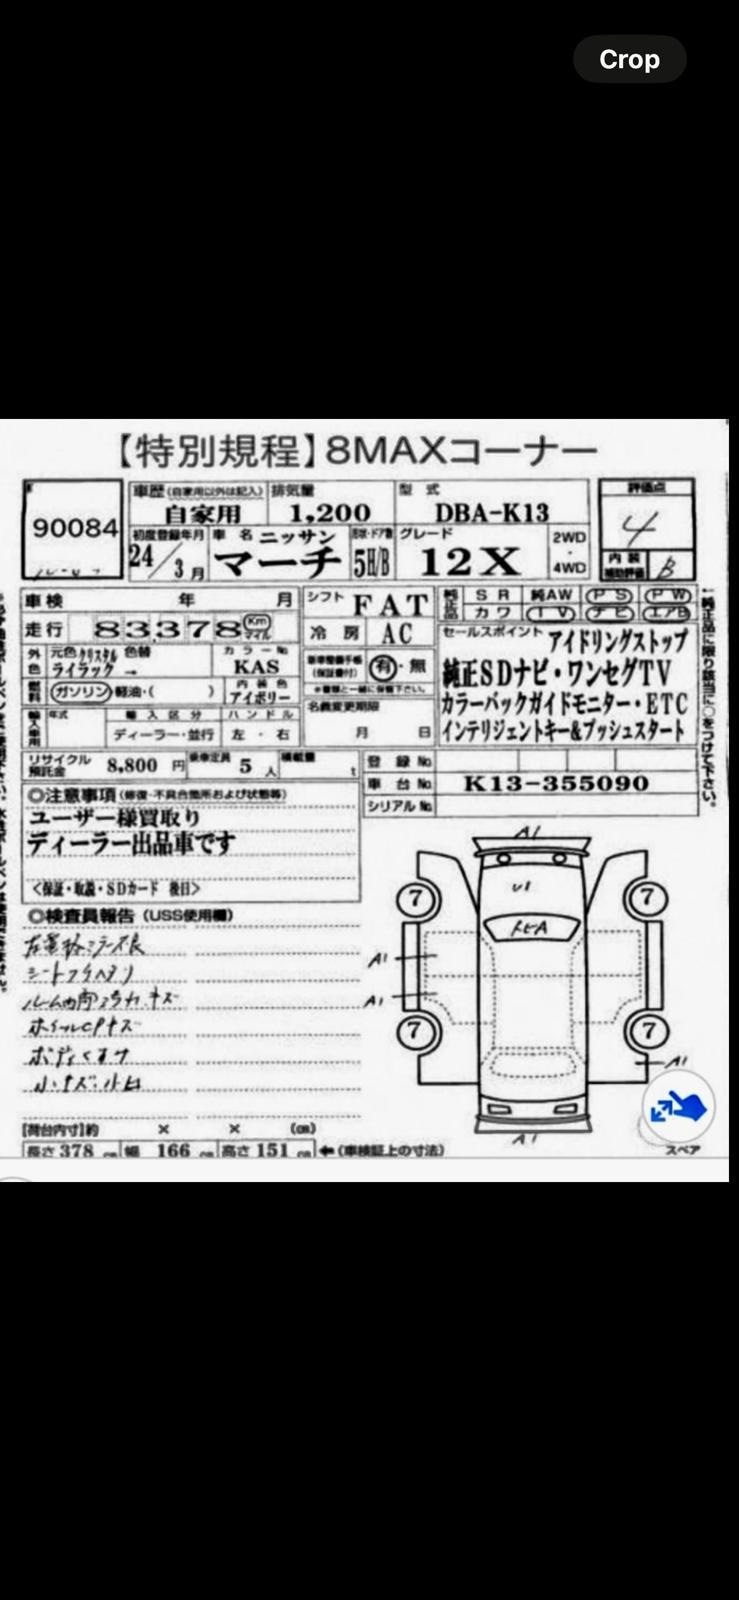 Crop
【特別規程】8MAXコーナー
90084
車歴 (自家用以外は記入) 排気量 型式 評価点
自家用 1,200 DBA-K13 4
初度登録年月 車名 ニッサン 形状・ドア数 グレード 2WD・4WD 内装補助評価 B
24/3月 マーチ 5H/B 12X
車検 年 月 シフト FAT 純正品 SR 純AW PS PW
カワ TV ナビ エアB
走行 83,378 Km マイル 冷房 AC
セールスポイント アイドリングストップ
純正SDナビ・ワンセグTV
カラーバックガイドモニター・ETC
インテリジェントキー&プッシュスタート
外色 元色 クリスタルライラック 色替 → カラーNo KAS
有・無
燃料 ガソリン 軽油・( ) 内装色 アイボリー
名義変更期限 月 日
輸入車用 年式 輸入区分 ハンドル
ディーラー・並行 左・右
リサイクル預託金 8,800円 乗車定員 5人 積載量 t
登録No.
車台No. K13-355090
シリアルNo.
◎注意事項 (修復・不具合箇所および状態等)
ユーザー様買取り
ディーラー出品車です
<保証・取説・SDカード 後日>
◎検査員報告 (USS使用欄)
シートフクヘタリ
ホイールCPキズ
小キズ・小凹
A1
U1
7 7
A1
A1
7 7
A1
A1
スペア
【荷台内寸】約 × × (cm)
長さ 378 cm 幅 166 cm 高さ 151 cm ←(車検証上の寸法)
←純正品に限り該当に○をつけて下さい。